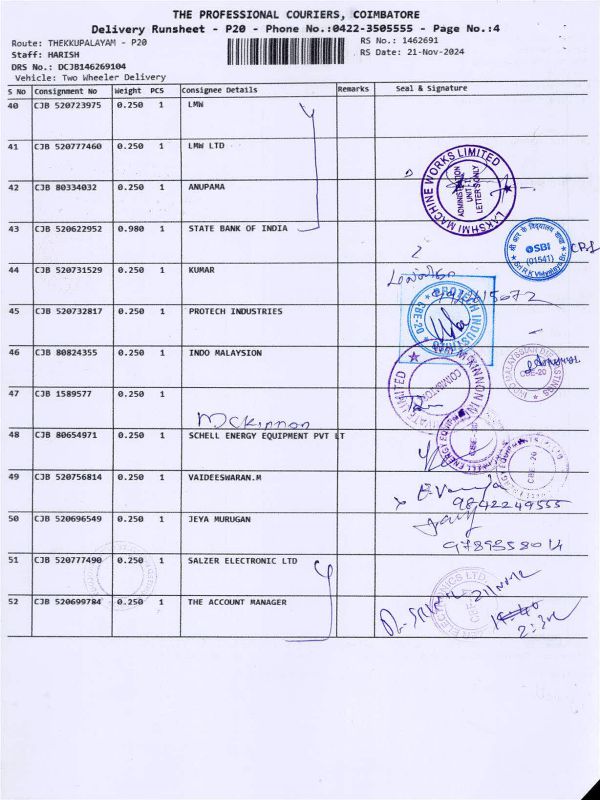 THE PROFESSIONAL COURIERS, COIMBATORE
Delivery Runsheet - P20 - Phone No.:0422-3505555 - Page No.:4
Route: THEKKUPALAYAM - P20 RS No.: 1462691
Staff: HARISH RS Date: 21-Nov-2024
DRS No.: DCJB146269104
Vehicle: Two Wheeler Delivery
S No Consignment No Weight PCS Consignee Details Remarks Seal & Signature
40 CJB 520723975 0.250 1 LMW
41 CJB 520777460 0.250 1 LMW LTD
LAKSHMI MACHINE WORKS LIMITED
ADMINISTRATION
UNIT II
LETTERS ONLY
42 CJB 80334032 0.250 1 ANUPAMA
43 CJB 520622952 0.980 1 STATE BANK OF INDIA
SBI
(01541)
44 CJB 520731529 0.250 1 KUMAR
45 CJB 520732817 0.250 1 PROTECH INDUSTRIES
PROTECH INDUSTRIES
CBE-20
46 CJB 80824355 0.250 1 INDO MALAYSION
CBE-20
47 CJB 1589577 0.250 1
Mckinnon
48 CJB 80654971 0.250 1 SCHELL ENERGY EQUIPMENT PVT LT
49 CJB 520756814 0.250 1 VAIDEESWARAN.M
9842249555
50 CJB 520696549 0.250 1 JEYA MURUGAN
51 CJB 520777490 0.250 1 SALZER ELECTRONIC LTD
52 CJB 520699784 0.250 1 THE ACCOUNT MANAGER